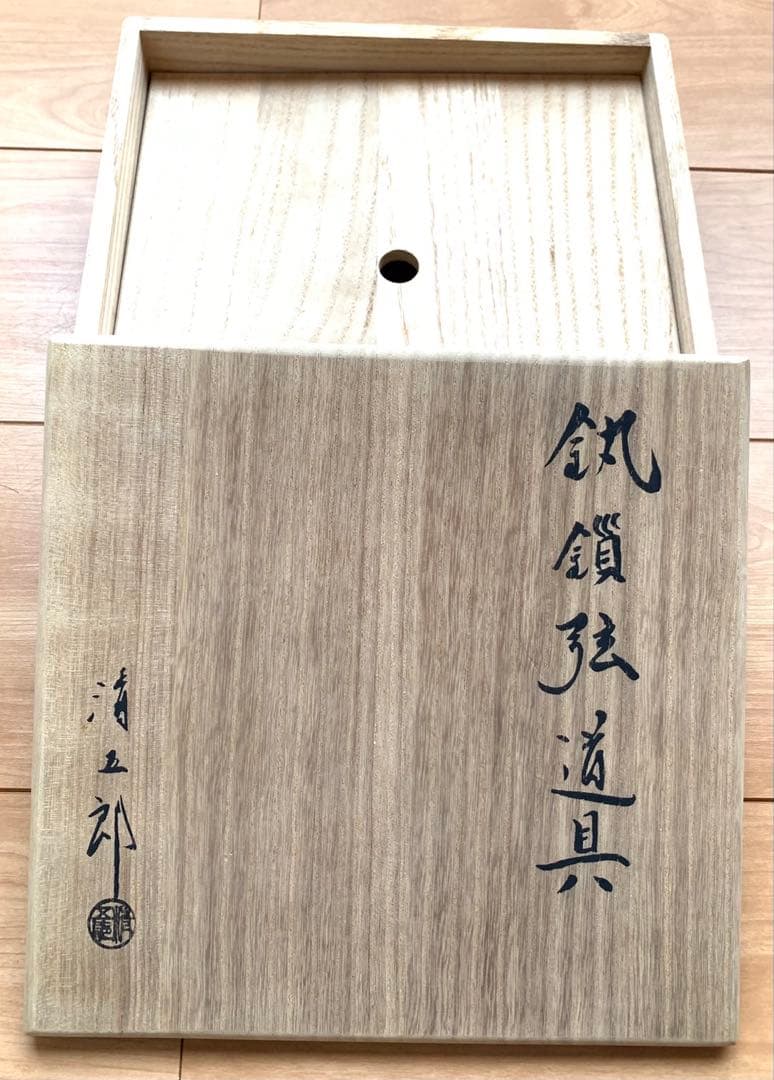 釻鎖弦道具
清五郎